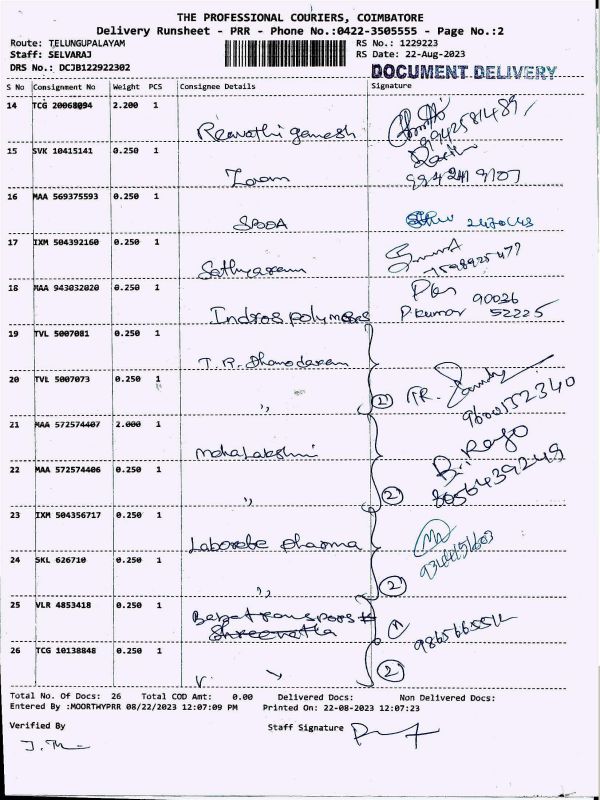 THE PROFESSIONAL COURIERS, COIMBATORE
Delivery Runsheet - PRR - Phone No.:0422-3505555 - Page No.:2
Route: TELUNGUPALAYAM RS No.: 1229223
Staff: SELVARAJ RS Date: 22-Aug-2023
DRS No.: DCJB122922302 DOCUMENT DELIVERY
S No Consignment No Weight PCS Consignee Details Signature
14 TCG 20068094 2.200 1
Revathi ganesh 9942581489
15 SVK 10415141 0.250 1
Zoom
16 MAA 569375593 0.250 1
SPDOA
17 IXM 504392160 0.250 1
Sathyaseem
18 MAA 943032020 0.250 1
Indros polymers Pkumar 90026 52225
19 TVL 5007081 0.250 1
T.R. Dhamodaran
20 TVL 5007073 0.250 1
,, 2 TR. 9600152340
21 MAA 572574407 2.000 1
Mahalakshmi
22 MAA 572574406 0.250 1
,, 2 8056439249
23 IXM 504356717 0.250 1
Laborate Pharma
24 SKL 626710 0.250 1
,, 2
25 VLR 4853418 0.250 1
26 TCG 10138848 0.250 1
2
Total No. Of Docs: 26 Total COD Amt: 0.00 Delivered Docs: Non Delivered Docs:
Entered By :MOORTHYPRR 08/22/2023 12:07:09 PM Printed On: 22-08-2023 12:07:23
Verified By Staff Signature